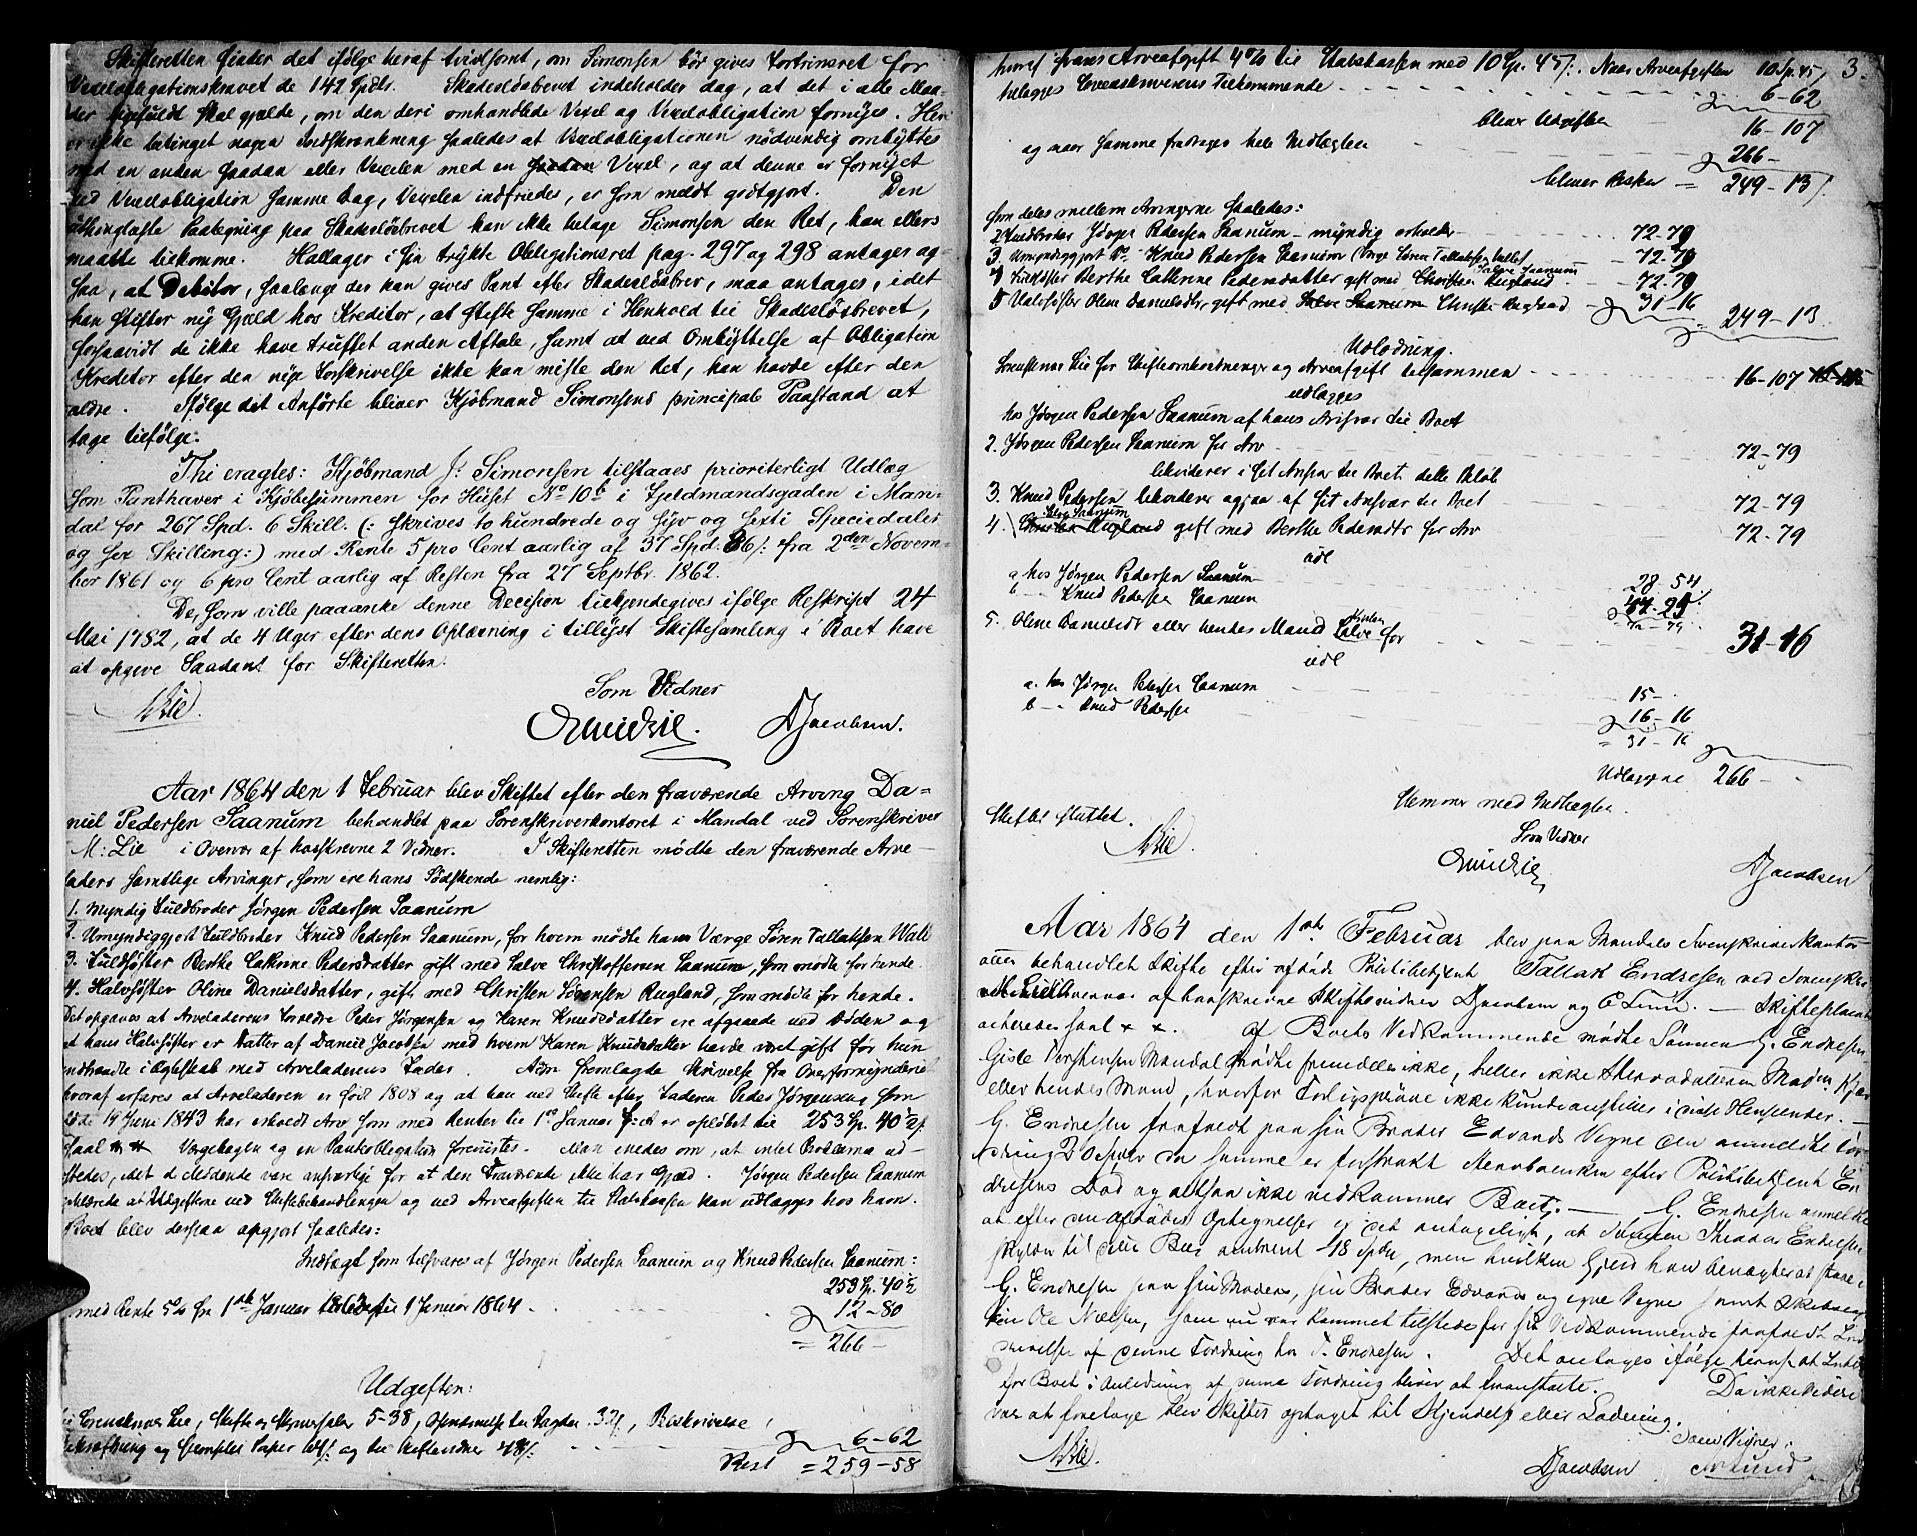 Skifteretten finder det ifølge heraf tvivlsomt, om Simonsen bør gives Fortrinsret for
Vexelobligationskravet de 142 Spdlr. Skadesløsbrevet indeholder dog, at det i alle Maa-
der ligefuldt skal gjælde, om den deri omhandlede Vexel og Vexelobligation fornyes. Her
er ikke betinget nogen Indskrænkning saaledes at Vexelobligationen nødvendig ombyttes
med en anden saadan eller Vexelen med en saadan Vexel, og at denne er fornyet
ved Vexelobligation samme Dag, Vexelen indfriedes, er som meldt godtgjort. Den
Paategning paa Skadesløsbrevet kan ikke betage Simonsen den Ret, han ellers
maatte tilkomme. Hallager i sin trykte Obligationsret pag. 297 og 298 antages og-
saa, at Debitor, saalænge der kan gives Pant efter Skadesløsbrev, maa antages, idet
han stifter ny Gjæld hos Kreditor, at stifte samme i Henhold til Skadesløsbrevet,
forsaavidt de ikke have truffet anden Aftale, samt at ved Ombyttelse af Obligation
Kreditor efter den nye Forskrivelse ikke kan miste den Ret, han havde efter den
ældre. Ifølge det Anførte bliver Kjøbmand Simonsens principale Paastand at
tage tilfølge.
Thi eragtes: Kjøbmand J: Simonsen tilstaaes prioriterligt Udlæg
som Panthaver i Kjøbesummen for Huset No 10b i Fjeldmandsgaden i Man-
dal for 267 Spd. 6 Skill. (: skrives to hundrede og syv og sexti Speciedaler
og sex Skilling:) med Rente 5 pro Cent aarlig af 37 Spd: 86/: fra 2den Novem-
ber 1861 og 6 pro Cent aarlig af Resten fra 27 Septbr. 1862.
De, som ville paaanke denne Decision tilkjendegives ifølge Reskript 24
Mai 1782, at de 4 Uger efter dens Oplæsning i tillyst Skiftesamling i Boet have
at opgive Saadant for Skifteretten.
Lie.
Som Vidner
DJacobsen.
Aar 1864 den 1 Februar blev Skiftet efter den fraværende Arving Da=
niel Pedersen Saanum behandlet paa Sorenskriverkontoret i Mandal ved Sorenskriver
M: Lie i Overvær af hosskrevne 2 Vidner. I Skifteretten mødte den fraværende Arve-
laders samtlige Arvinger, som ere hans Sødskende nemlig:
1. Myndig Fuldbroder Jørgen Pedersen Saanum
2. Umyndiggjort Fuldbroder Knud Pedersen Saanum, for hvem mødte hans Værge Søren Tallaksen Wall
3. Fuldsøster Berthe Catrine Pedersdatter gift med Salve Christoffersen Saanum, som mødte for hende.
4. Halvsøster Oline Danielsdatter, gift med Christen Sørensen Rugland, som mødte for hende.
Det opgaves at Arveladerens Forældre Peder Jørgensen og Karen Knudsdatter ere afgaaede ved Døden og
at hans Halvsøster er Datter af Daniel Jacobsen med hvem Karen Knudsdatter havde været gift før hun
indtraadte i Egteskab med Arveladerens Fader. Man fremlagde Skrivelse fra Overformynderiet
hvoraf erfares at Arveladeren er født 1808 og at han ved Skifte efter Faderen Peder Jørgensen, som
døde 14 Juni 1843 har erholdt Arv som med Renter til 1ste Januar f: A er opløbet til 253 Sp. 40 1/2 /.
saal. * * Værgebogen og en Pantobligation foreviistes. Man enedes om, at intet Proclama ud-
stedes, idet de Mødende vare ansvarlige for at den Fraværende ikke har Gjæld. Jørgen Pedersen Saanum
erklærede at Udgifterne ved Skiftebehandlingen og ved Arveafgiften til Statskassen kan udlægges hos ham.
Boet blev derpaa opgjort saaledes:
Indtægt som tilsvares af Jørgen Pedersen Saanum og Knud Pedersen Saanum:
253 Sp. 40 1/2
med Rente 5% fra 1ste Januar 1863 til 1 Januar 1864 12-80
= 266 -
Udgiften:
til Sorenskriver Lie, Skifte og Skriversaler 5-38, 32/, Beskrivelse
Bekræftning og stemplet Papir og til Skiftevidner 48/. 6-62
Rest = 259-58
3.
hvoraf svares Arveafgift 4% til Statskassen med 10 Sp. 45/. Naar Arveafgiften 10 Sp. 45/
tillægges Sorenskriverens Tilkommende 6-62
bliver Udgiften 16-107
og naar samme fradrages hele Indtægten 266-
bliver Resten = 249-13/
som deles mellem Arvingerne saaledes:
2. Fuldbroder Jørgen Pedersen Saanum - myndig erholder 72-79
3. Umyndiggjort Do Knud Pedersen Saanum Værge Søren Tallaksen Vallet 72-79
4 Fuldsøster Berthe Cathrine Pedersdatter gift med Christen Rugland Salve Saanum 72-79
5 Halvsøster Oline Danielsdtr. gift med Salve Saanum Christen Rugland 31-16
249-13
Udlodning.
Sorenskriver Lie for Skifteomkostninger og Arveafgift tilsammen 16-107
udlægges
hos Jørgen Pedersen Saanum af hans Ansvar til Boet
2. Jørgen Pedersen Saanum for Arv 72-79
likviderer i sit Ansvar til Boet dette Beløb
3. Knud Pedersen likviderer ogsaa af sit Ansvar til Boet 72-79
4. Christen Rugland Salve Saanum gift med Berthe Pedersdtr for Arv 72-79
udl
a hos Jørgen Pedersen Saanum 28 54
b — Knud Pedersen Saanum 44-25
= 72-79
5. Oline Danielsdt eller hendes Mand Salve Christen for 31-16
udl
a. hos Jørgen Pedersen Saanum 15-
b — Knud Pedersen 16-16
= 31-16
Udlæggene 266-
Stemmer med Indtægten.
Skiftet sluttet.
Lie.
Som Vidner
DJacobsen
Aar 1864 den 1ste Februar blev paa Mandals Sorenskriverkontor
behandlet Skifte efter afdøde Politibetjent Tallak Endresen ved Sorenskriver
M Lie i Overvær af hosskrevne Skiftevidner DJacobsen og C Lund. — Skifteplacat
saal * *. Af Boets Vedkommende mødte Sønnen G. Endresen
Gisle Torstensen Mandal mødte fremdeles ikke, heller ikke Madm. Kjær
eller hendes Mand, hvorfor Forligsprøve ikke kunde anstilles i disse Henseender. —
G. Endresen frafaldt paa sin Broder Edvards Vegne den anmeldte For-
dring 20 Spdlr da samme er Sterboenken efter Politibetjent En-
dresens Død og altsaa ikke vedkommer Boet. — G. Endresen anmeldte
at efter den Afdødes Optegnelser er det antageligt, at Sønnen Theodor Endresen
skylder til dette Bo omtrent 48 Spdlr, men hvilken Gjeld han benægter at staae i
G. Endresen paa sin Moders, sin Broder Edvards og egne Vegne samt
Ole Nielsen, som nu var kommet tilstede for sit Vedkommende frafaldt Ind-
drivelse af denne Fordring hos T. Endresen. Det antages ifølge heraf at Intet
for Boet i Anledning af denne Fordring bliver at foranstalte. Da ikke videre
var at foretage blev Skiftet optaget til Kjendelse eller Lodning.
Som Vidner.
Lie.
DJacobsen C Lund